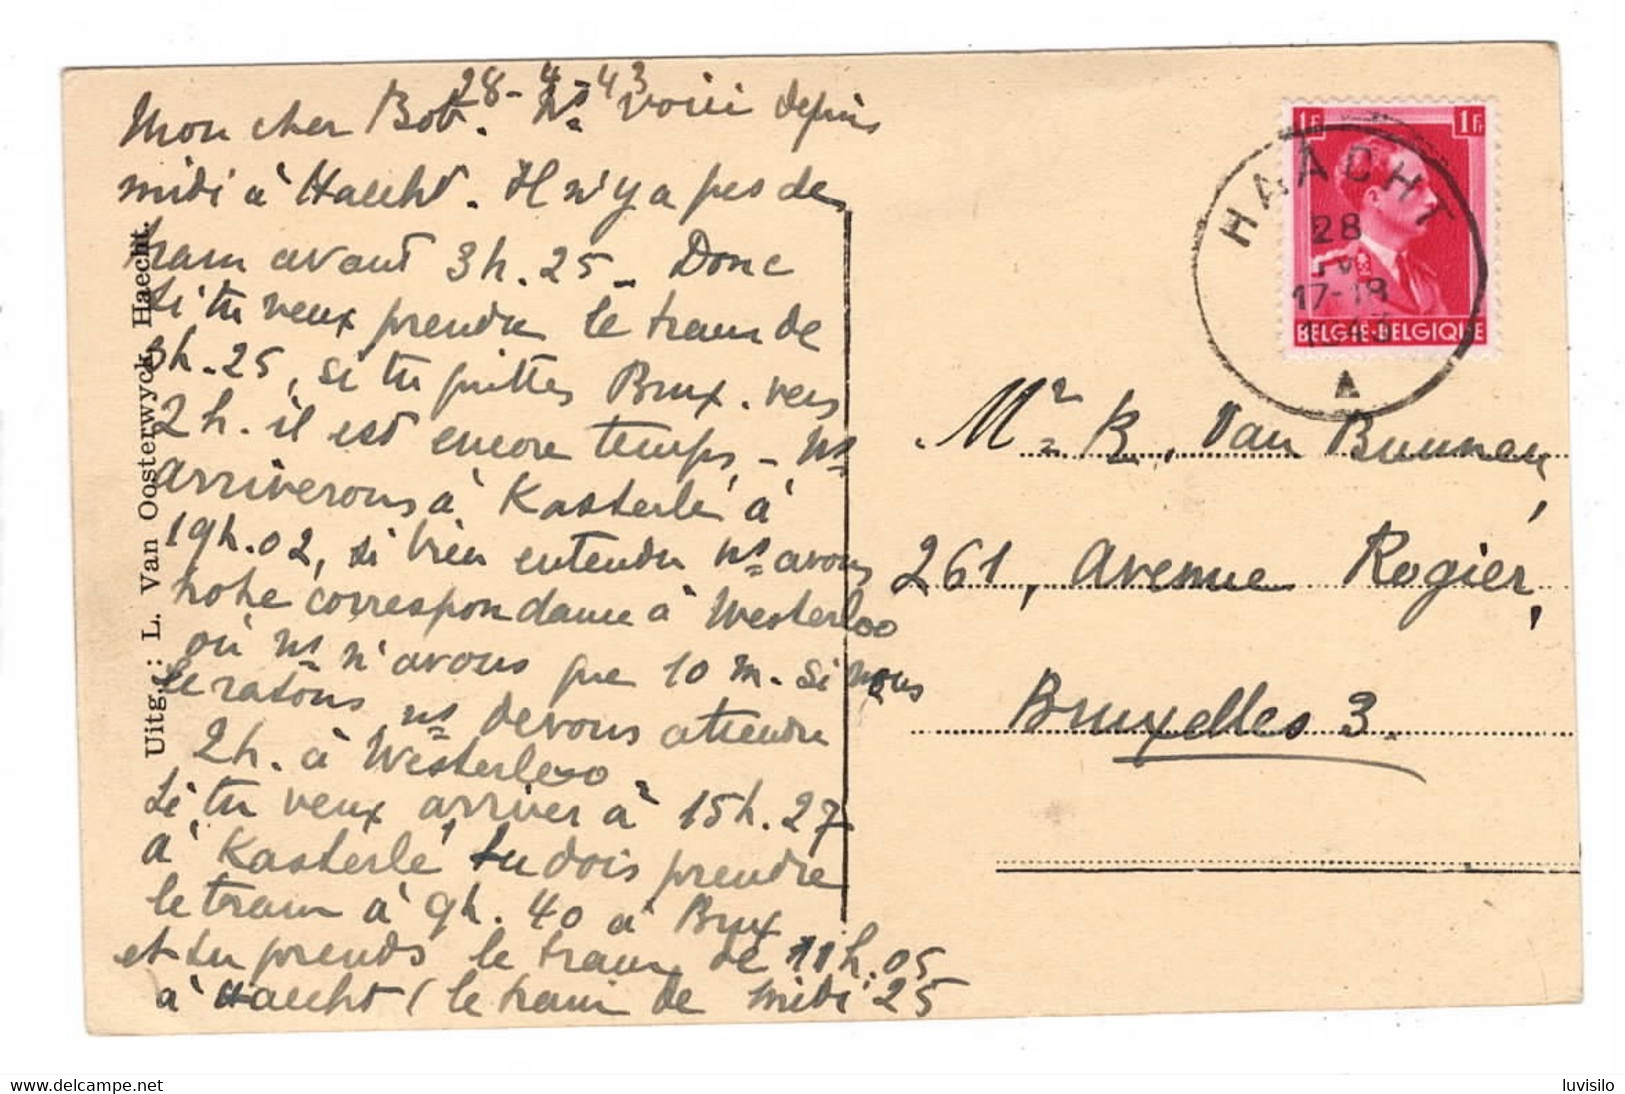 28-4-43
Mon cher Bob. Ns voici depuis
midi à Haecht. Il n'y a pas de
tram avant 3h.25 - Donc
si tu veux prendre le tram de
3h.25, si tu quittes Brux. vers
2h. il est encore temps, - Ns
arriverons à Kasterlé à
19h.02, si bien entendu ns avons
notre correspondance à Westerloo
où ns n'avons que 10 m. si nous
le ratons ns devons attendre
2h. à Westerloo.
Si tu veux arriver à 15h.27
à Kasterlé tu dois prendre
le tram à 9h.40 à Brux
et tu prends le tram de 11h.05
à Haecht (le tram de midi 25
Uitg.: L. Van Oosterwyck, Haecht.
1Fr 1Fr
BELGIE-BELGIQUE
HAACHT
28
IV
17-18
1943
A
Mr R. Van Bunnen,
261, Avenue Rogier,
Bruxelles 3.
www.delcampe.net
luvisilo